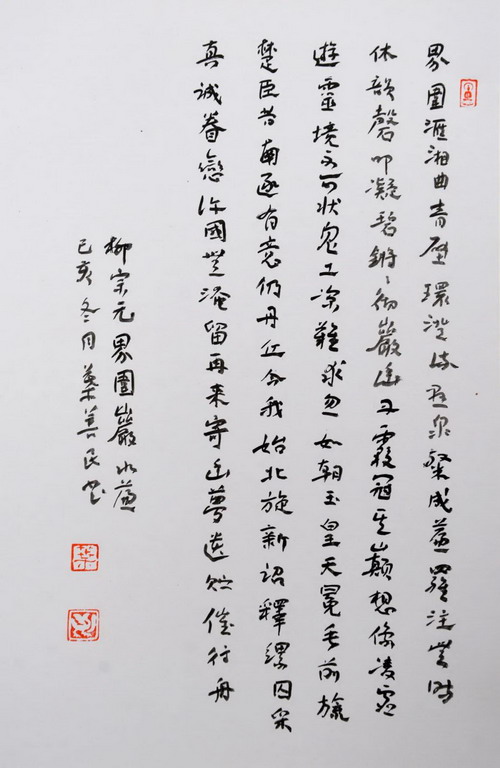 界圍滙湘曲青壁環澄流懸泉粲成簾羅注無時
休韻磬叩凝碧鏘〻徹巖幽丹霞冠其巔想像凌虛
遊靈境不可狀鬼工諒難求忽如朝玉皇天冕垂前旒
楚臣昔南逐有意仍丹丘今我始北旋新詔釋縲囚采
真誠眷戀許國無淹留再来寄幽夢遺貯催行舟
柳宗元界圍巖水簾
己亥冬月葉善民書